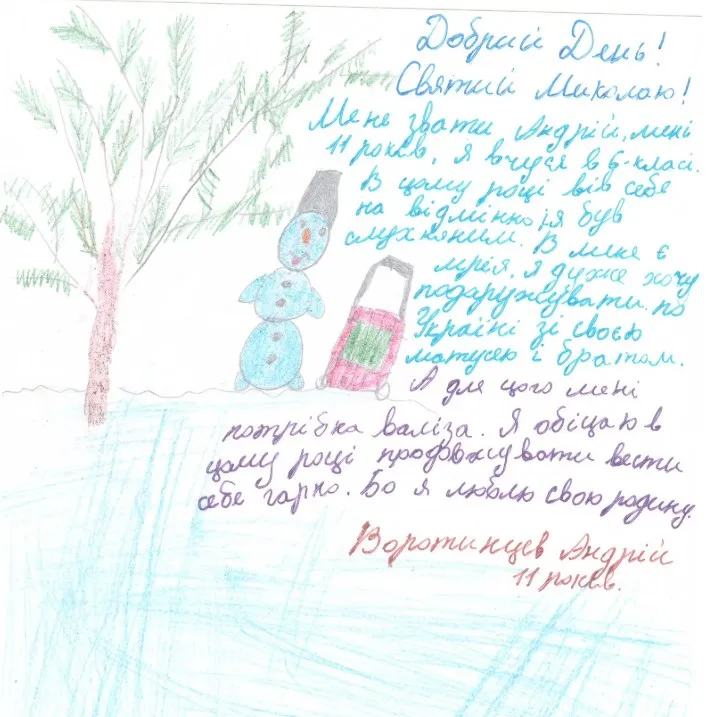 Добрий День!
Святий Миколаю!
Мене звати Андрій, мені
11 років, я вчуся в 6-класі.
В цому році вів себе
на відмінно, я був
слухняним. В мене є
мрія, я дуже хочу
подаружувати по
Україні зі своєю
матусею і братом.
А для цого мені
потрібна валіза. Я обіцаю в
цому році продовжувати вести
себе гарно. Бо я люблю свою родину.
Воротинцев Андрій
11 років.